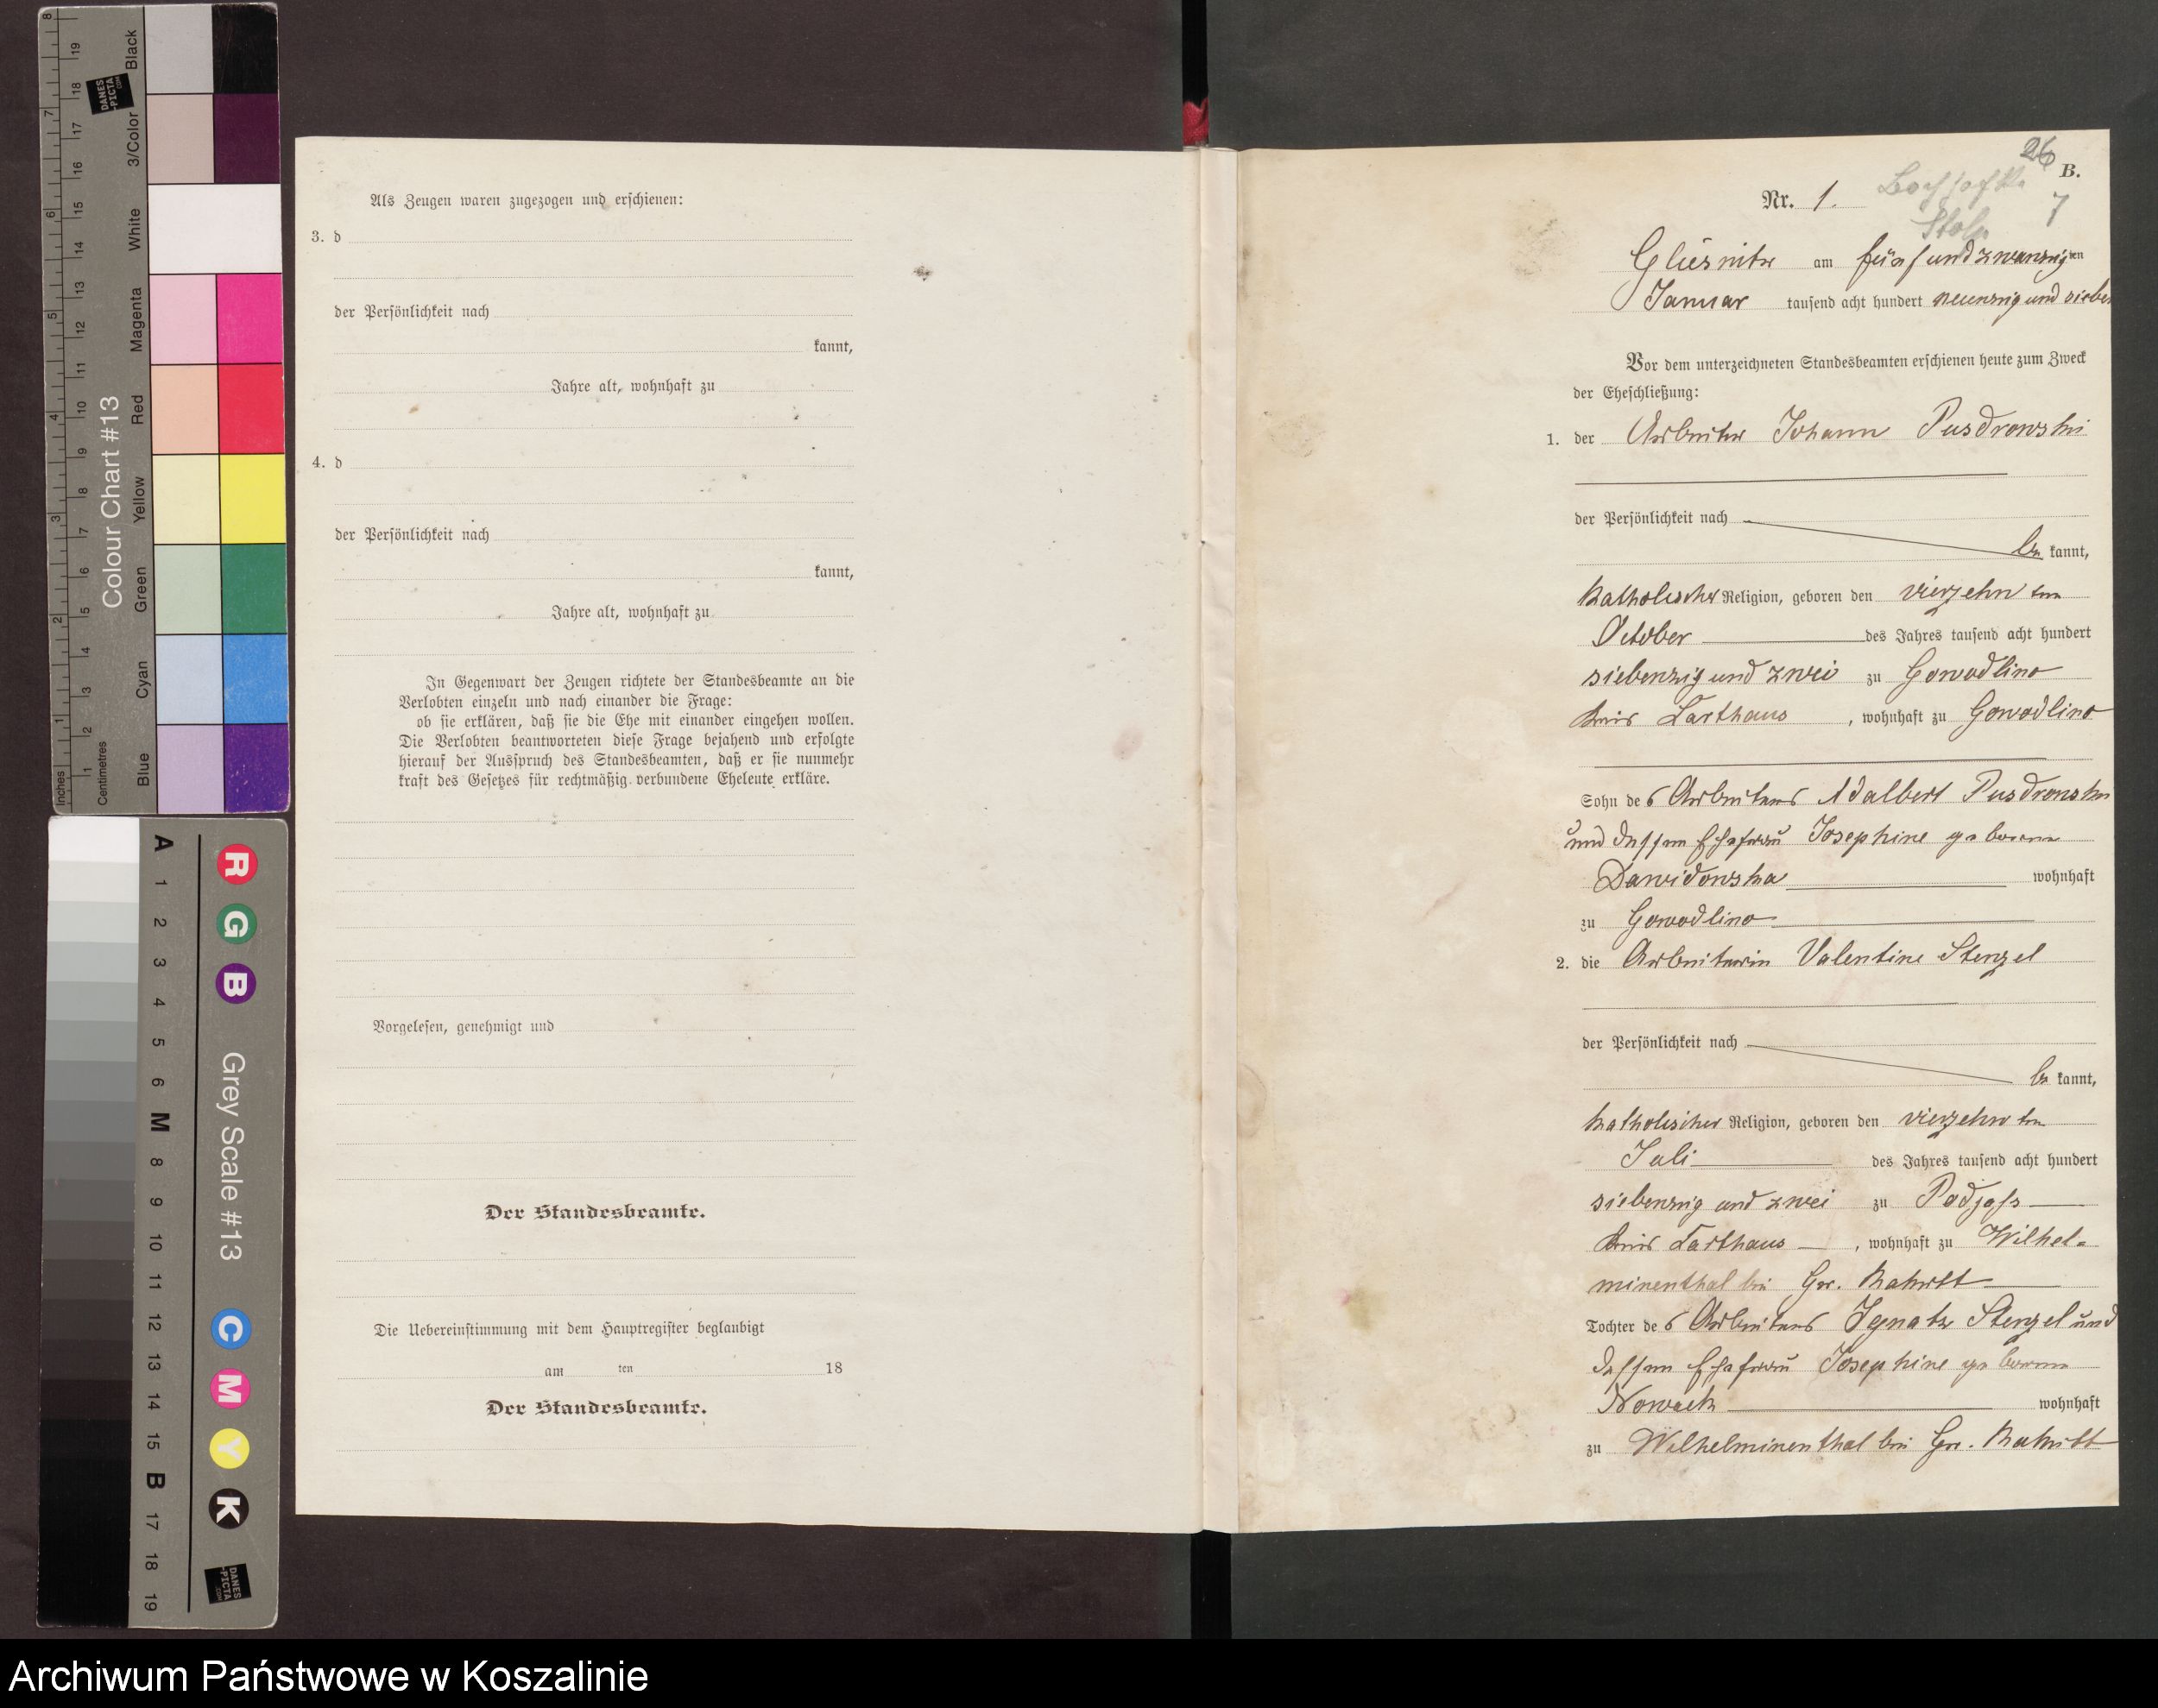 Als Zeugen waren zugezogen und erschienen:
3. d
der Persönlichkeit nach
kannt,
Jahre alt, wohnhaft zu
4. d
der Persönlichkeit nach
kannt,
Jahre alt, wohnhaft zu
In Gegenwart der Zeugen richtete der Standesbeamte an die
Verlobten einzeln und nach einander die Frage:
ob sie erklären, daß sie die Ehe mit einander eingehen wollen.
Die Verlobten beantworteten diese Frage bejahend und erfolgte
hierauf der Ausspruch des Standesbeamten, daß er sie nunmehr
kraft des Gesetzes für rechtmäßig verbundene Eheleute erkläre.
Vorgelesen, genehmigt und
Der Standesbeamte.
Die Uebereinstimmung mit dem Hauptregister beglaubigt
am ten 18
Der Standesbeamte.
26
B.
Nr. 1.
7
am fünf und zwanzigten
Januar tausend acht hundert neunzig und sieben
Vor dem unterzeichneten Standesbeamten erschienen heute zum Zweck
der Eheschließung:
1. der Arbeiter Johann Pusdrowski
der Persönlichkeit nach
be kannt,
katholischer Religion, geboren den vierzehnten
October des Jahres tausend acht hundert
siebenzig und zwei zu Gowodlino
Kreis Carthaus, wohnhaft zu Gowodlino
Sohn des Arbeiters Adalbert Pusdrowski
und dessen Ehefrau Josephine geborene
Dawidowska wohnhaft
zu Gowodlino
2. die Arbeiterin Valentine Stenzel
der Persönlichkeit nach
be kannt,
katholischer Religion, geboren den vierzehnten
Juli des Jahres tausend acht hundert
siebenzig und zwei zu Podjass
Kreis Carthaus, wohnhaft zu Wilhel-
minenthal bei Gr. Rakitt
Tochter des Arbeiters Ignatz Stenzel und
dessen Ehefrau Josephine geborene
Nowack wohnhaft
zu Wilhelminenthal bei Gr. Rakitt
Black
3/Color
White
Magenta
Red
Yellow
Green
Cyan
Blue
Colour Chart #13
Inches
Centimetres
DANES
-PICTA
.COM
R G B
Grey Scale #13
C M Y K
A 1 2 3 4 5 6 M 8 9 10 11 12 13 14 15 B 17 18 19
DANES
-PICTA
.COM
Archiwum Państwowe w Koszalinie